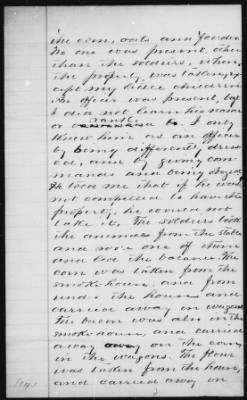 the corn, oats and fodder
No one was present, other
than the soldiers, when
the property was taken, ex-
cept my little children
An officer was present, but
I did not learn his name
or rank I only
know him as an officer
by being differently dress-
ed, and by giving com-
mands and being obeyed
He told me that if he was
not compelled to have the
property, he would not
take it. The soldiers took
the animals from the stable
and rode one of them
and led the balance. The
corn was taken from the
smokehouse and from
under the house and
carried away in wagons.
The bacon was also in the
smokehouse, and carried
away on the corn
in the wagons. The flour
was taken from the house,
and carried away on